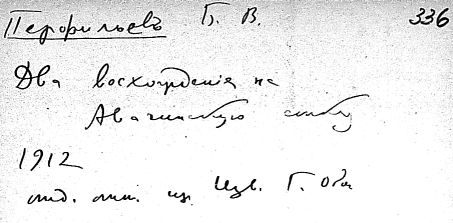 Перфильевъ Б. В. 336
Два восхожденія на
Авачинскую сопку
1912
отд. отт. из Изв. Г. Общ